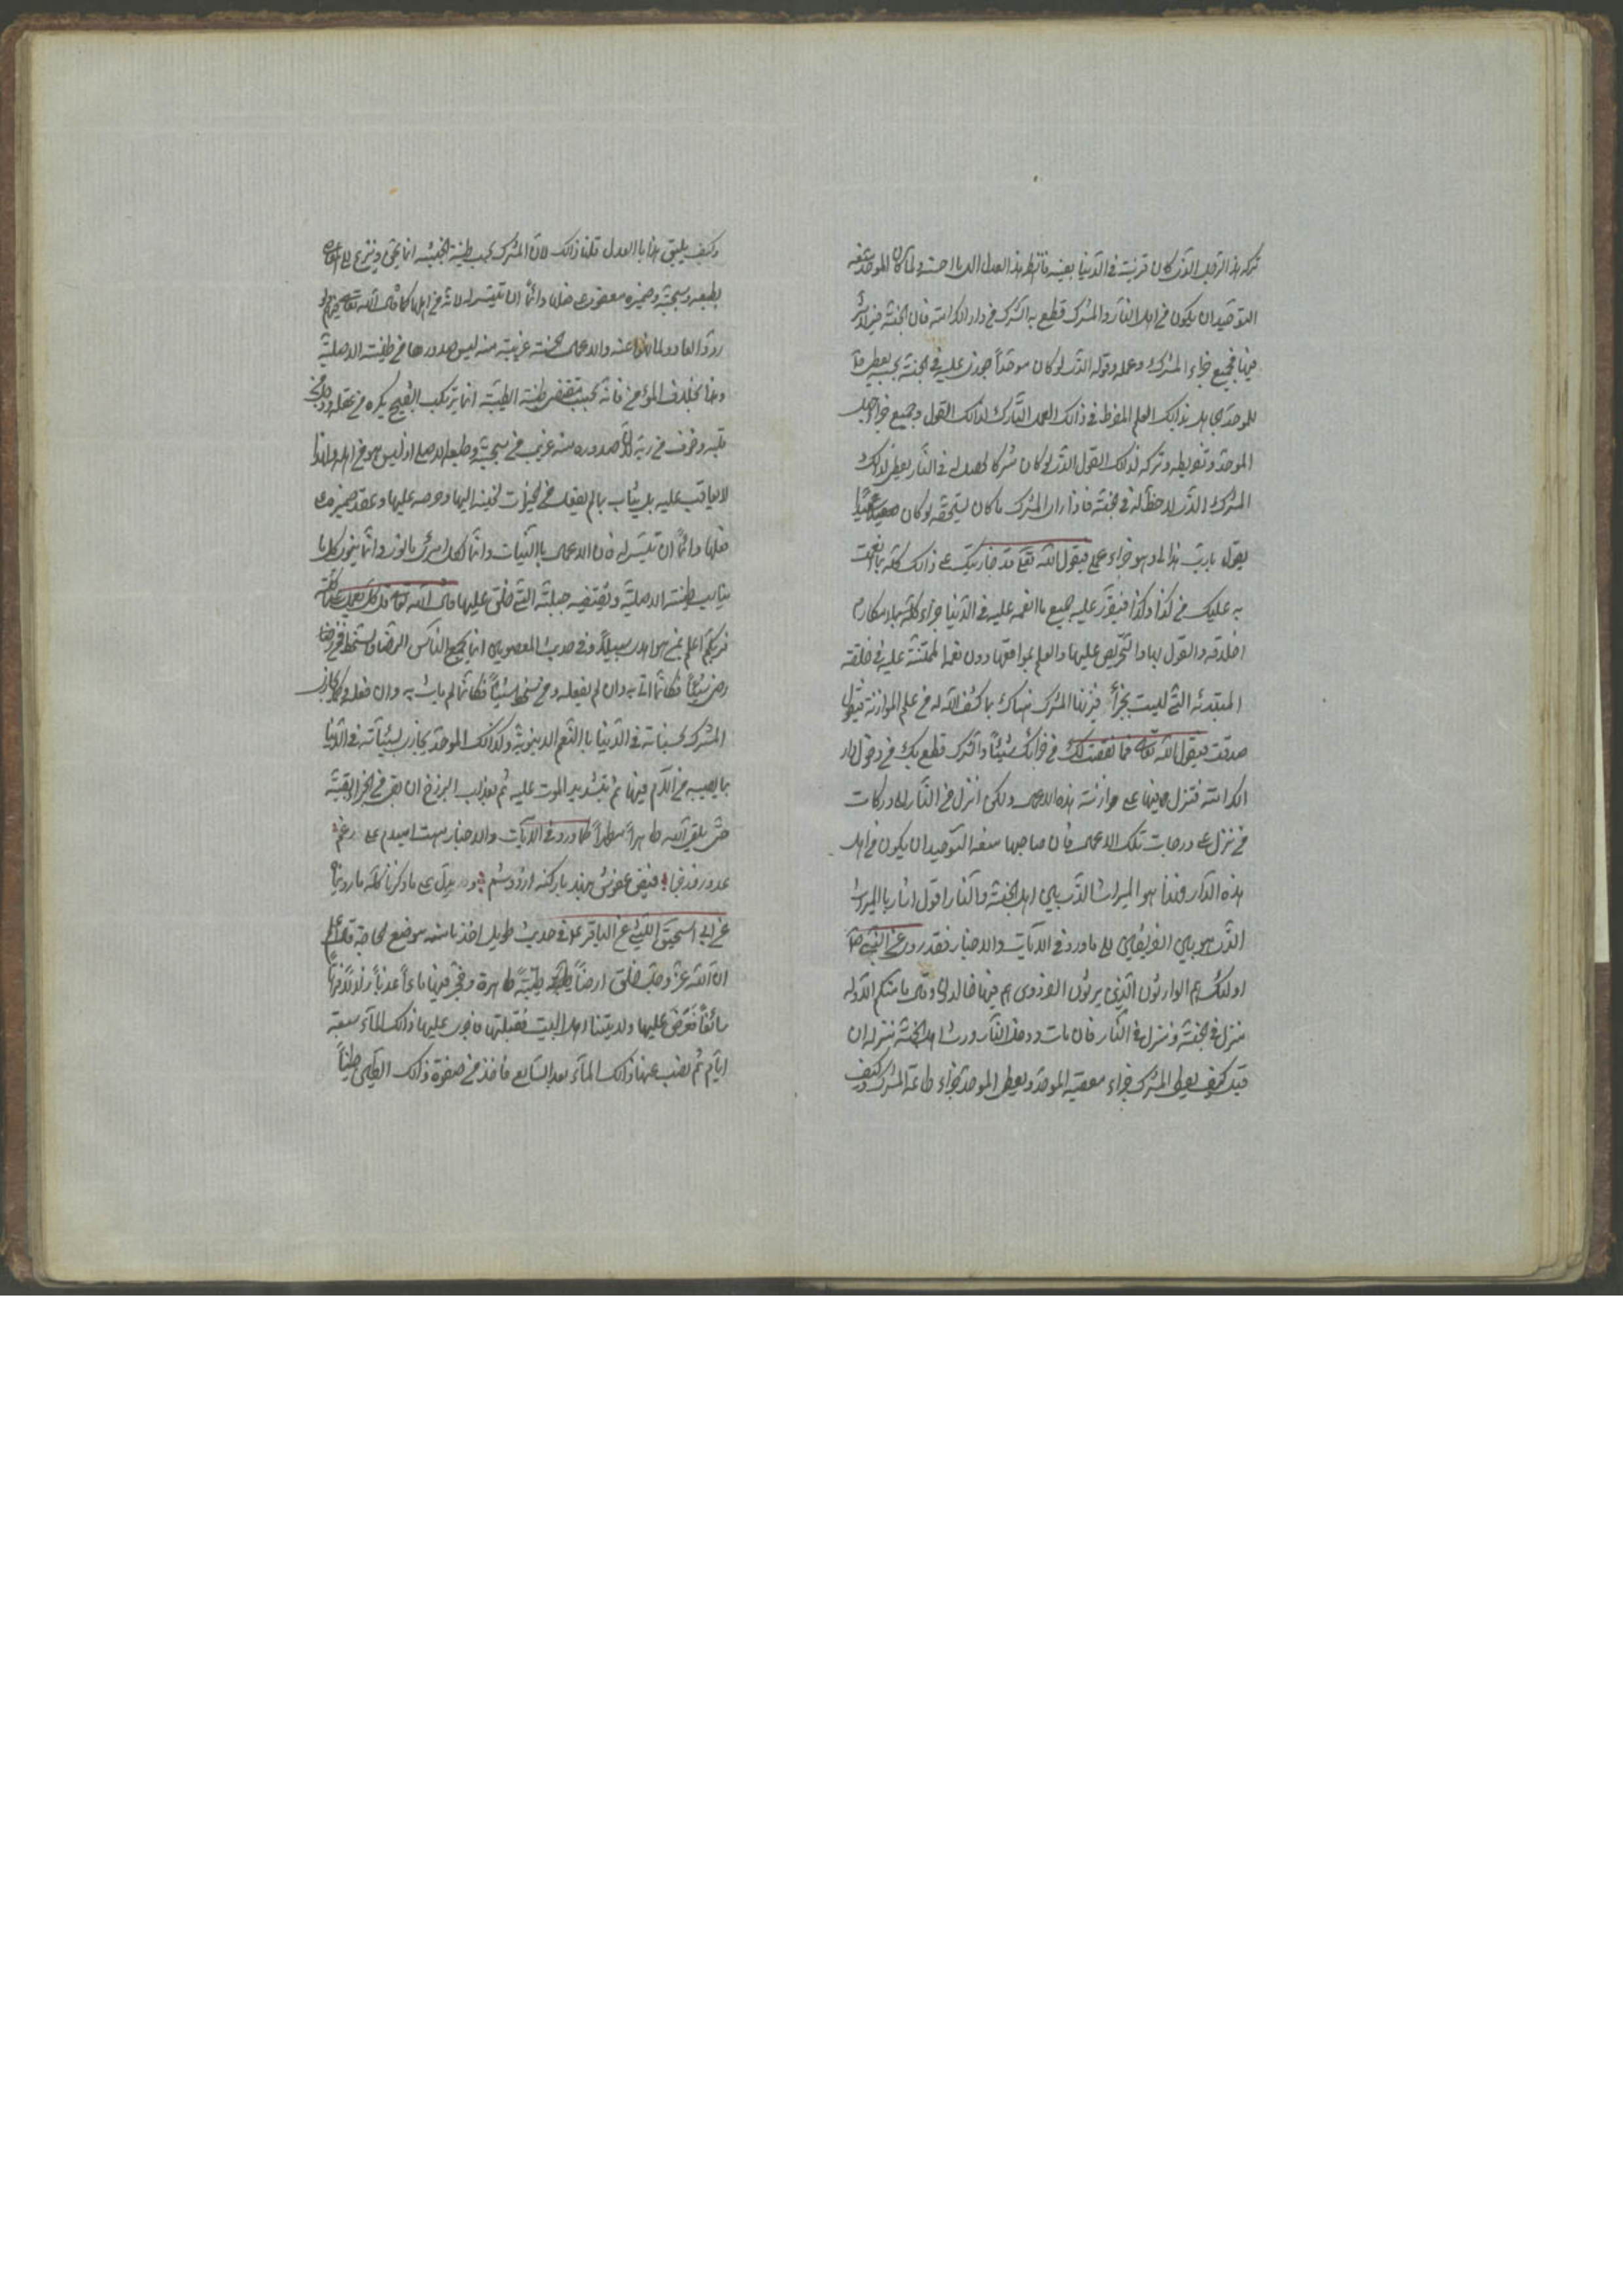 تركه هذا الرجل الذي كان قرينه في الدنيا بعينه فانظر هذا العدل الالهي ما احسنه ولما كان الموحد يمنعه
التوحيد ان يكون من اهل النار والمشرك قطع به الشرك من دار الكرامة فان الجنة فيزل اثر
فيها فجميع جزاء المشرك وعمله وقوله الذي لو كان موحداً جوزى عليه في الجنة بحسبه يعطى
للموحد الجاهل بذلك العلم المفرط في ذلك العمل التارك لذلك القول وجميع جزاء جهل
الموحد وتفريطه وتركه لذلك القول الذي لو كان مشركا لحصل له في النار يعطى لذلك
المشرك الذي لا حظ له في الجنة فاذا راى المشرك ما كان يستحقه لو كان سعيداً
يقول يا رب هذا لى وهو جزاء عملي فيقول الله تعالى قد جازيتك على ذلك كله بما انعمت
به عليك من كذا وكذا فيقرر عليه جميع ما انعم عليه في الدنيا جزاء كله لمكارم
اخلاقه والقول بها والتحريص عليها والعلم بمواقعها دون نعمه الممتنة عليه في خلقه
المبتدئه التي ليست بجزاء فيزنها المشرك هناك بما كشف الله له من علم الموازنة فيقول
صدقت فيقول الله تعالى فما نقصتك من جزائك شيئاً والشرك قطع بك من دخول دار
الكرامة فتنزل فيها على موازنة هذه الاعمال ولكن انزل من النار الى دركات
من نزل على درجات تلك الاعمال فان صاحبها منعه التوحيد ان يكون من اهل
هذه الدار فهذا هو الميراث الذي بين اهل الجنة والنار اقول اشار بالميراث
الذي هو بين الفريقين الى ما ورد في الآيات والاخبار فقد روى عن النبي ص
اولئك هم الوارثون الذين يرثون الفردوس هم فيها خالدون وقال ما منكم الا وله
منزل في الجنة ومنزل في النار فان مات ودخل النار ورث اهل الجنة منزله ان
قيل كيف يعطى المشرك جزاء معصية الموحد ويعطى الموحد جزاء طاعة المشرك وكيف
وكيف يليق هذا بالعدل قلنا ذلك لان المشرك بحسب طينة الخبيثه انما يحن وينزع الى المعاصي
بطبعه وسجيته وضميره معقود على فعلها دائماً ان تيسر له لانه من اهلها كما قال الله تعالى ولو
ردوا لعادوا لما نهوا عنه والاعمال الحسنة غريبة منه ليس صدورها من طينته الاصلية
وهذا بخلاف المؤمن فانه بحسب مقتضى طينته الطيبة انما يرتكب القبيح بكره من عقله
قلبه وخوف من ربه لان صدوره منه غريب من سجيته وطبعه الاصلى اذ ليس هو من اهله ولهذا
لا يعاقب عليه بل يثاب بما لم يفعله من الخيرات لحنينه اليها وحرصه عليها وعقد ضميره على
فعلها دائماً ان تيسر له فان الاعمال بالنيات وانما لكل امرئ ما نوى وانما ينوى كل ما
يناسب طينته الاصلية وتقتضيه جبلته التي خلق عليها قال الله تعالى قل كل يعمل على شاكلته
فربكم اعلم بمن هو اهدى سبيلاً وفي حديث المعصومين انما يجمع الناس الرضا والسخط فمن رضى
رضى شيئاً فكانما اتى به وان لم يفعله ومن سخط شيئاً فكانما لم يأت به وان فعله وكما يجازى
المشرك بحسناته في الدنيا بالنعم الدنيوية وكذلك الموحد يجازى بسيئاته في الدنيا
بما يصيبه من الآلام فيها ثم بتشديد الموت عليه ثم بعذاب البرزخ ان بقى من الجزاء بقية
حتى يلقى الله طاهراً مطهراً كما ورد في الآيات والاخبار هست اميدم على رغم
عدو روز جزا فيض عفوش ننهد بار گنه بر دوشم ويدل على ما ذكرنا كله ما رويناه
عن ابي اسحق الليثى عن الباقر ع في حديث طويل اخذنا منه موضع الحاجة قال ع
ان الله عز وجل خلق ارضاً طيبة طاهرة وفجر فيها ماءاً عذباً زلالاً فراتاً
سائغاً فعرض عليها ولايتنا اهل البيت فقبلتها فاجرى عليها ذلك الماء سبعة
ايام ثم نضب عنها ذلك الماء بعد السابع فاخذ من صفوة ذلك الطين طيناً